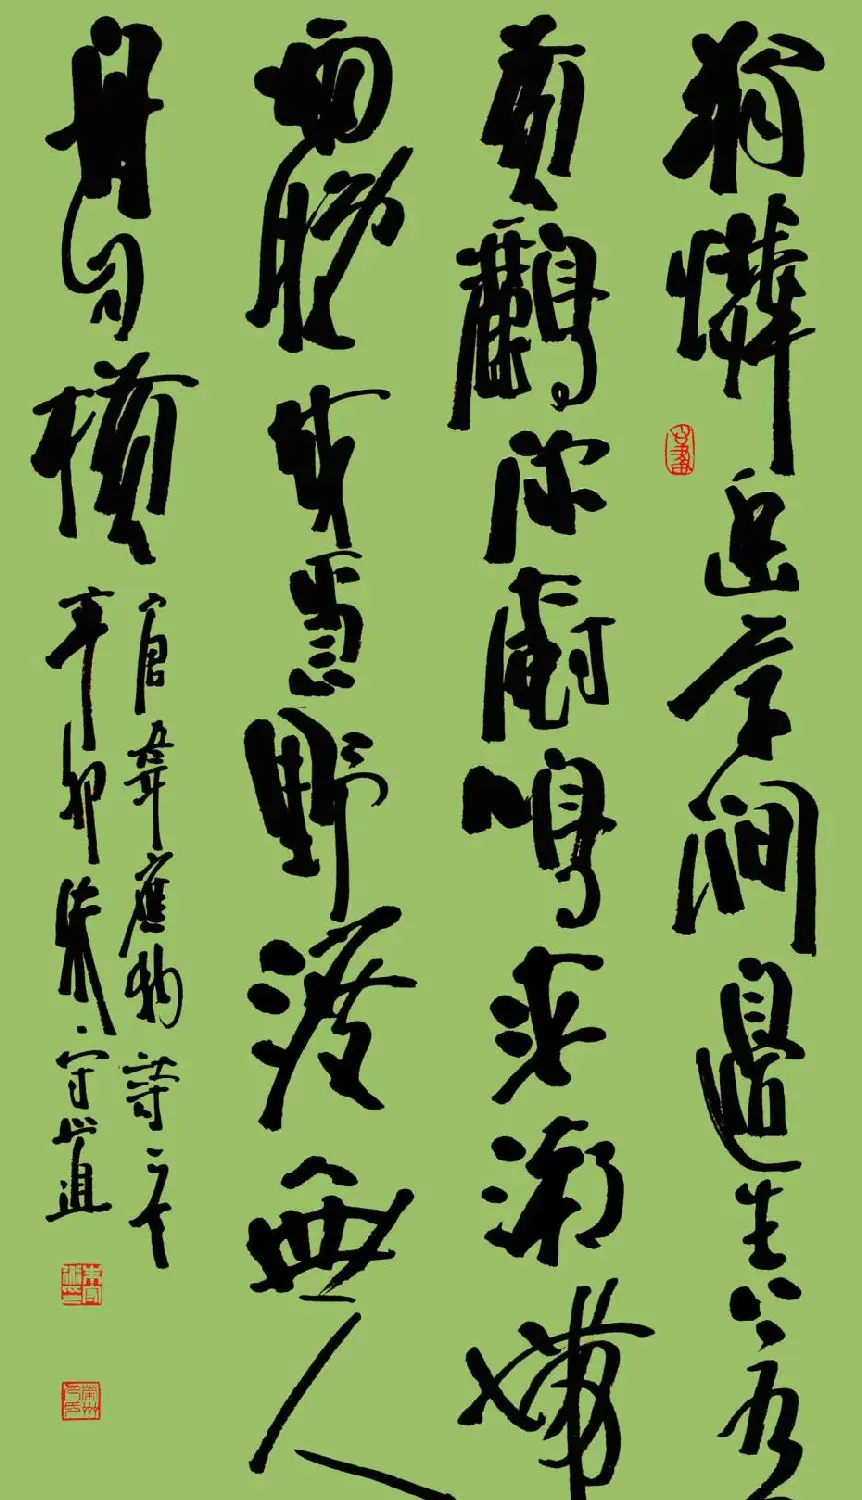 獨憐幽草澗邊生上有
黃鸝深樹鳴春潮帶
雨晚來急野渡無人
舟自橫
唐韋應物詩一首
辛卯朱守道